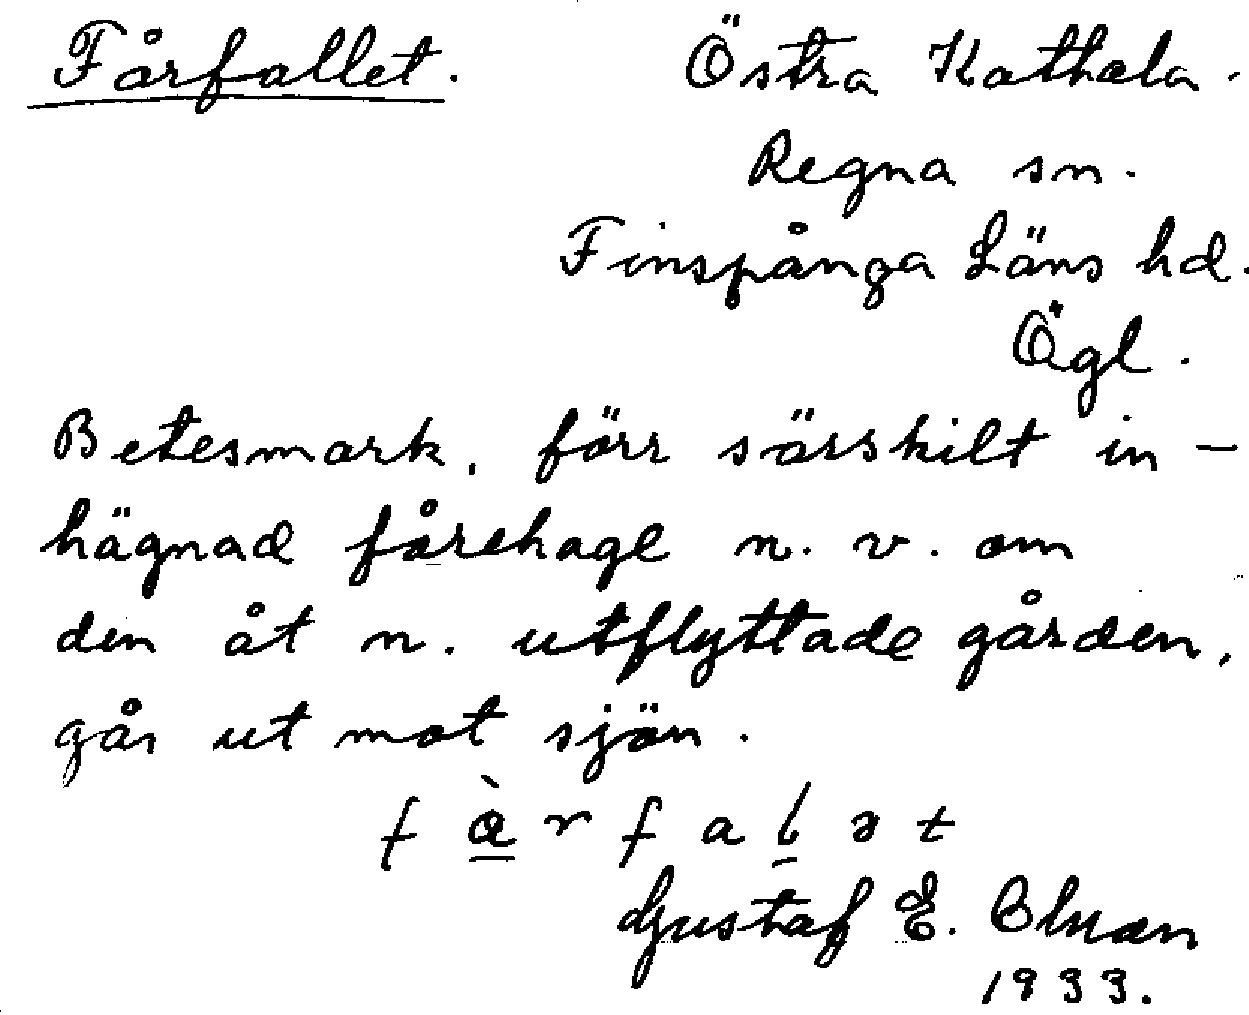 Fårfallet. Östra Kathala.
Regna sn.
Finspånga Läns hd.
Ögl.
Betesmark, förr särskilt in-
hägnad fårehage n. v. om
den åt n. utflyttade gården,
går ut mot sjön.
f å̀ r f a l ə t
Gustaf E.
1933.